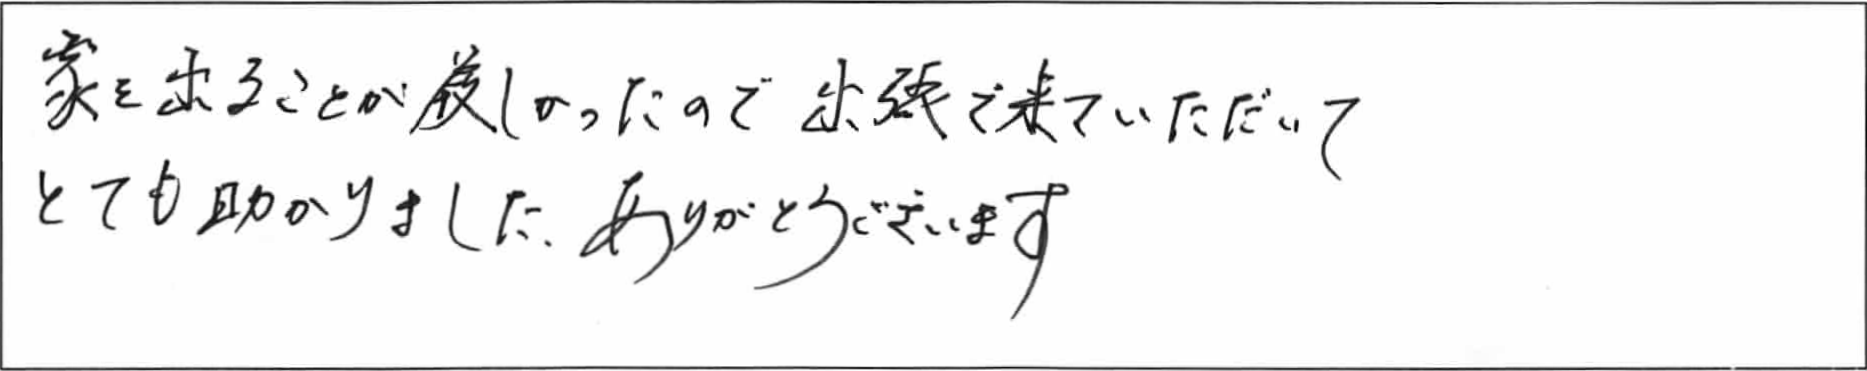 家を出ることが厳しかったので出張で来ていただいて
とても助かりました、ありがとうございます